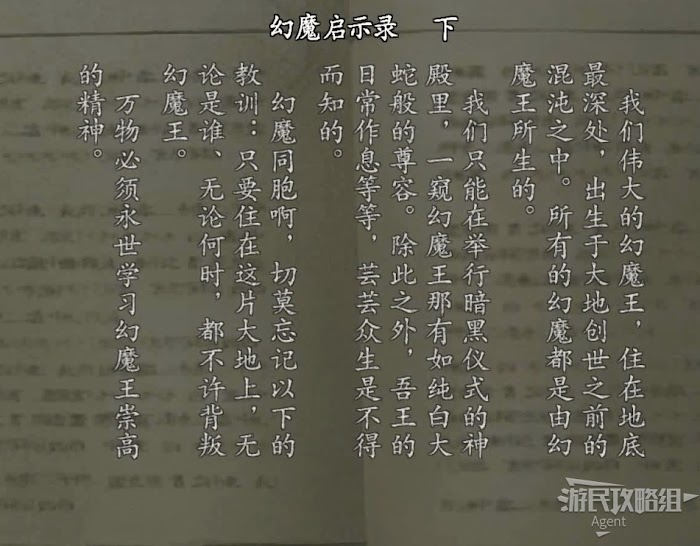 幻魔启示录 下
我们伟大的幻魔王，住在地底
最深处，出生于大地创世之前的
混沌之中。所有的幻魔都是由幻
魔王所生的。
我们只能在举行暗黑仪式的神
殿里，一窥幻魔王那有如纯白大
蛇般的尊容。除此之外，吾王的
日常作息等等，芸芸众生是不得
而知的。
幻魔同胞啊，切莫忘记以下的
教训：只要住在这片大地上，无
论是谁、无论何时，都不许背叛
幻魔王。
万物必须永世学习幻魔王崇高
的精神。
游民攻略组
Agent